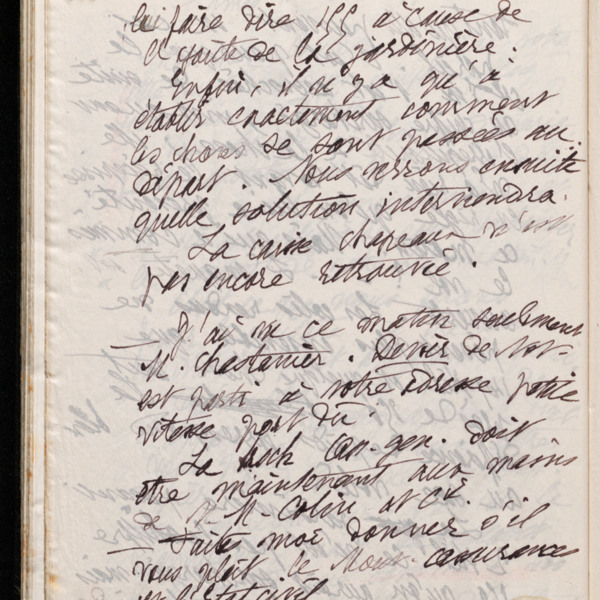 le faire dire 1ff à cause de
de la jardinière.
Enfin, il n'y a qu'à
établir exactement comment
les choses se sont passées au
départ. Nous verrons ensuite
quelle solution interviendra.
La caisse chapeaux n'est
pas encore retrouvée.
— J'ai vu ce matin seulement
M. Chastanier. Devoir de
est parti à votre adresse petite
vitesse port dû.
La doit
être maintenant aux mains
de M. M. Colin et Cie.
— Faites moi donner s'il
vous plaît le assurances